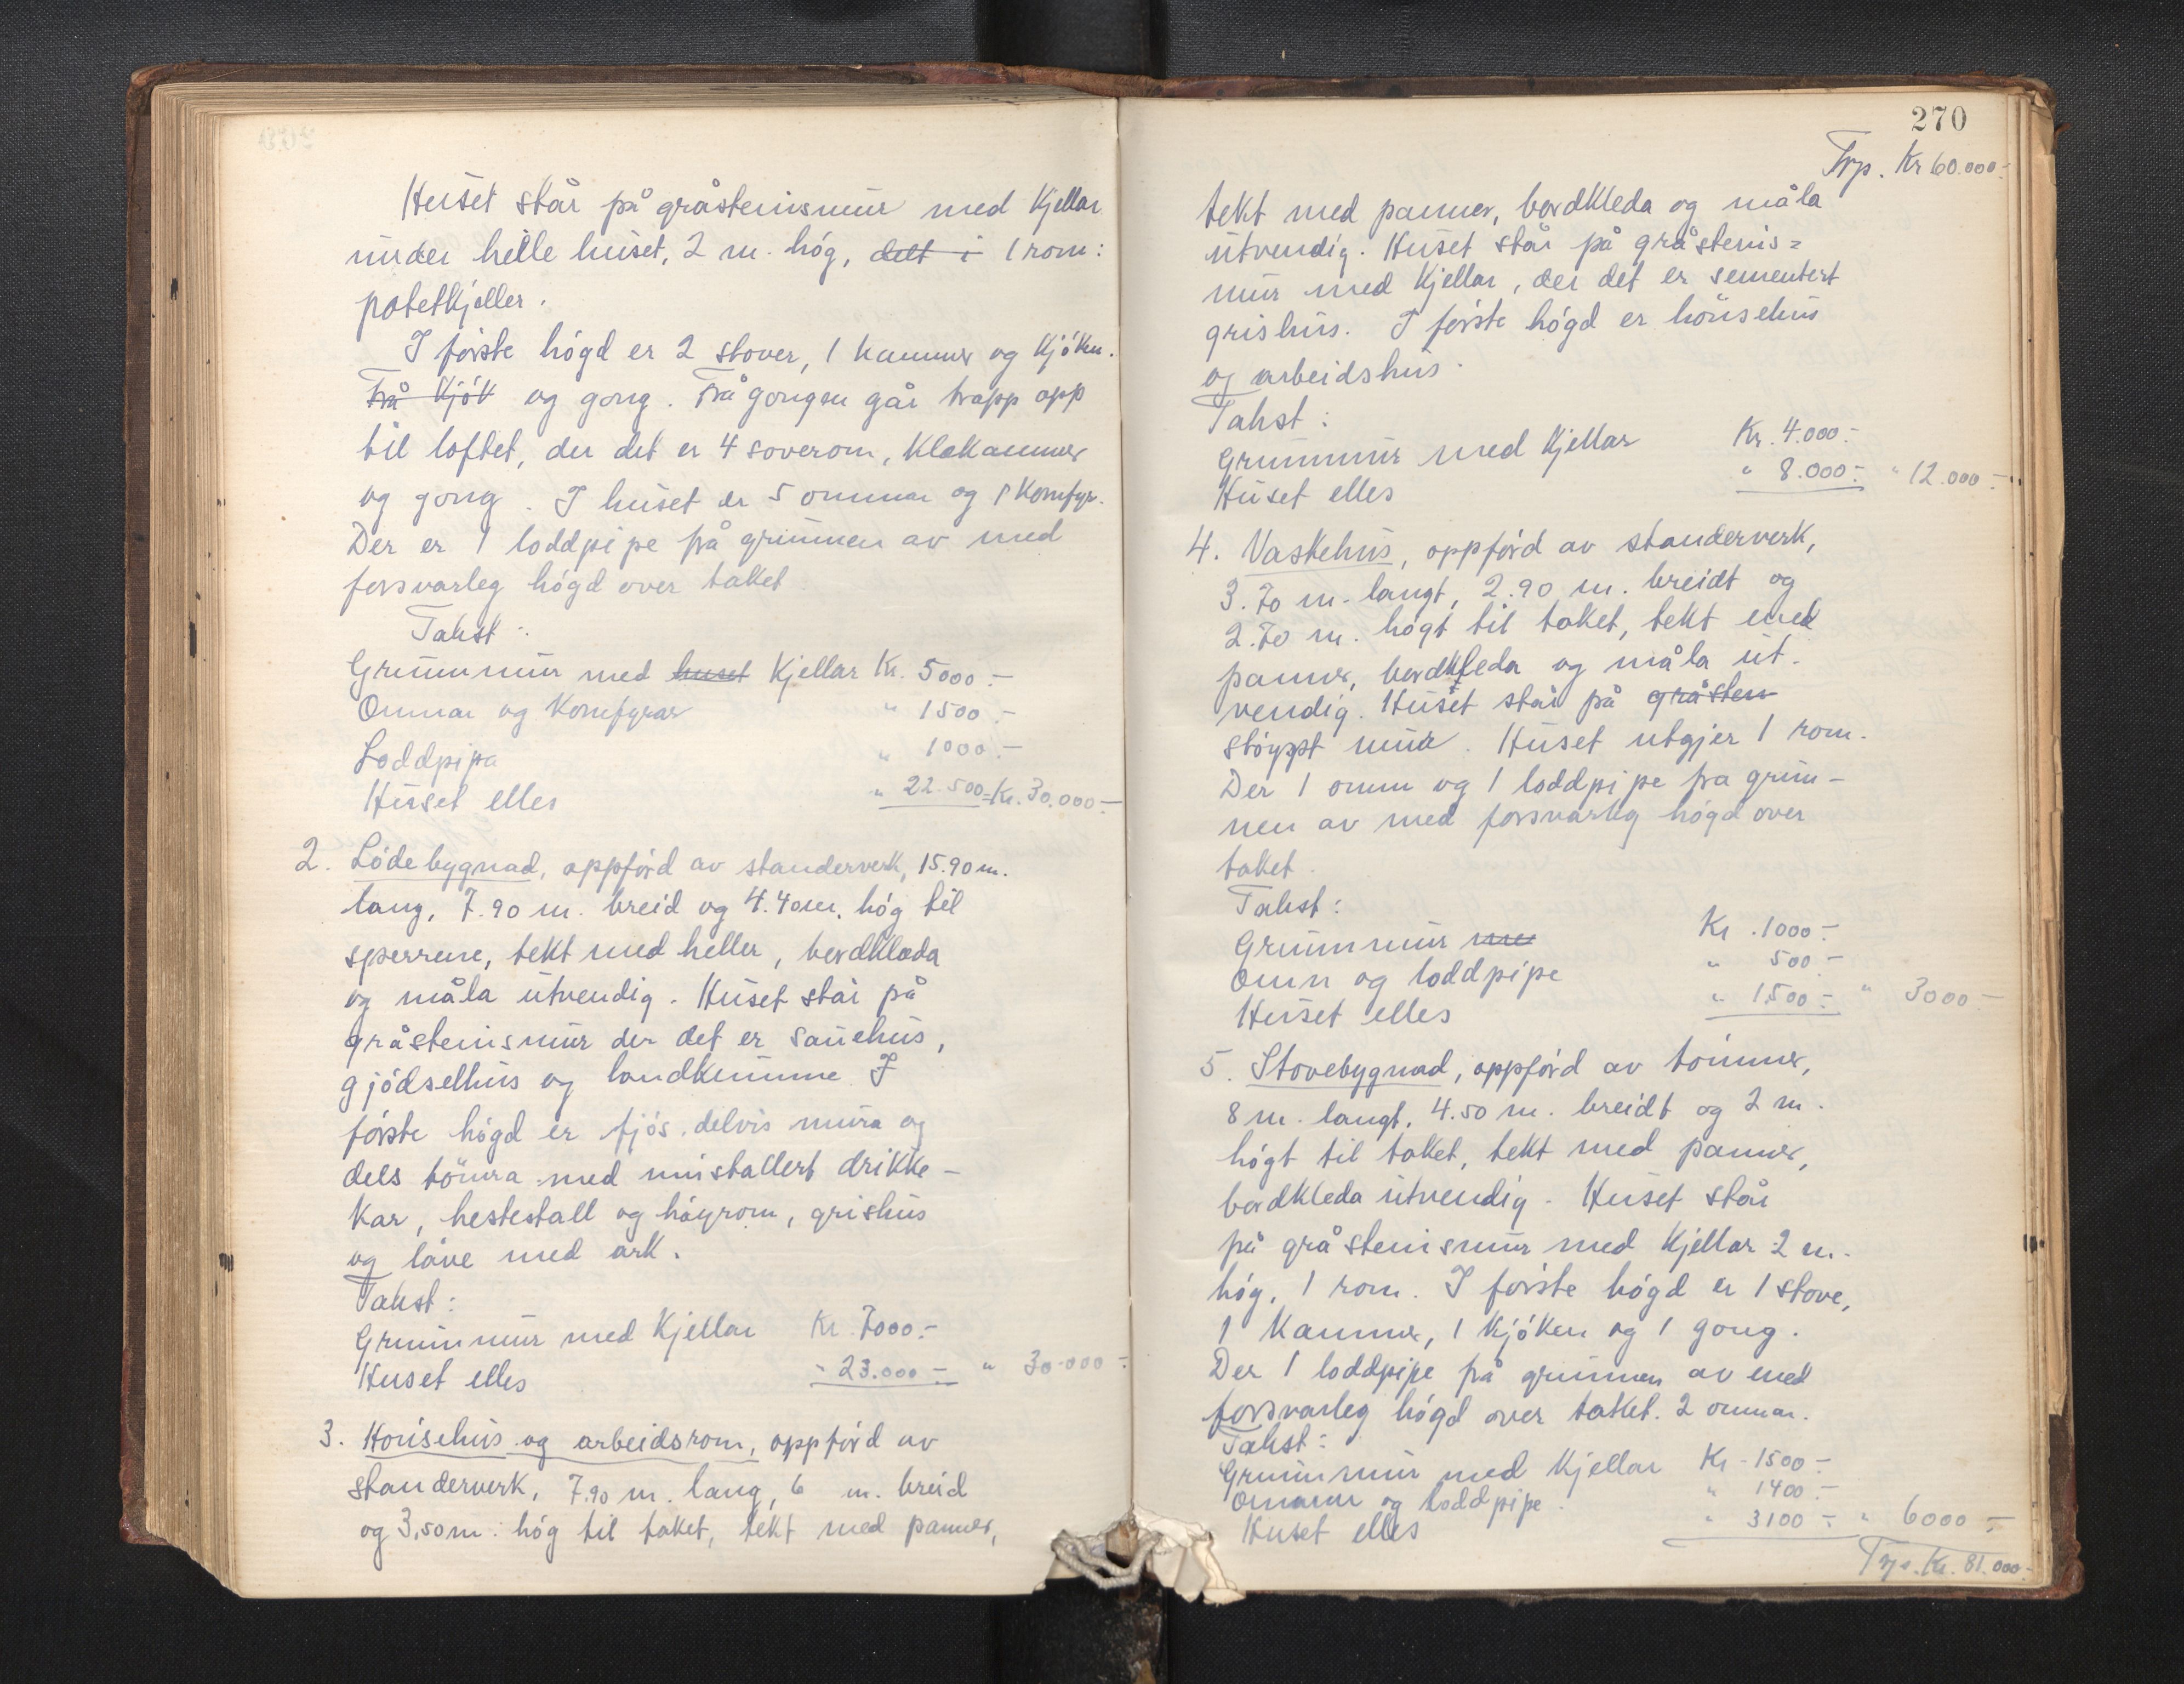 Huset står på gråsteinsmur med Kjellar
under heile huset, 2 m. høg, delt i 1 rom:
potetkjeller.
I første høgd er 2 stover, 1 kammer og Kjøken.
Frå Kjøk og gong. Frå gongen går trapp opp
til loftet, der det er 4 soverom, Klekammer
og gong. I huset er 5 omnar og 1 Komfyr.
Der er 1 loddpipe frå grunnen av med
forsvarleg høgd over taket.
Takst:
Grunnmur med huset Kjellar Kr. 5000.-
Omnar og Komfyrar " 1500.-
Loddpipa " 1000.-
Huset elles " 22.500 = Kr. 30.000.-
2. Lødebygnad, oppførd av standerverk, 15.90 m.
lang, 7.90 m. breid og 4.40 m. høg til
sperrene, tekt med heller, bordklæda
og måla utvendig. Huset står på
gråsteinsmur der det er sauehus,
gjødselhus og landkumme I
første høgd er fjøs, delvis mura og
dels tømra med innstallert drikke-
Kar, hestestall og høyrom, grishus
og låve med ark.
Takst:
Grunnmur med Kjellar Kr. 7000.-
Huset elles " 23.000.- " 30.000.-
3. Hønsehus og arbeidsrom, oppførd av
standerverk, 7.90 m. lang, 6 m. breid
og 3,50 m. høg til taket, tekt med panner,
270
Trp. Kr 60.000.-
tekt med panner, bordkleda og måla
utvendig. Huset står på gråsteins=
mur med Kjellar, der det er sementert
grishus. I første høgd er hønsehus
og arbeidshus.
Takst:
Grunnmur med Kjellar Kr. 4.000.-
Huset elles " 8.000.- " 12.000.-
4. Vaskehus, oppførd av standerverk,
3.70 m. langt, 2.90 m. breidt og
2.70 m. høgt til taket, tekt med
panner, bordkleda og måla ut-
vendig. Huset står på gråsten
støypt mur. Huset utgjer 1 rom.
Der 1 omn og 1 loddpipe fra grun-
nen av med forsvarleg høgd over
taket.
Takst:
Grunnmur me Kr. 1000.-
Omn og loddpipe " 500.-
Huset elles " 1.500.- " 3000.-
5. Stovebygnad, oppførd av tømmer,
8 m. langt, 4.50 m. breidt og 2 m.
høgt til taket, tekt med panner,
bordkleda utvendig. Huset står
på gråsteinsmur med Kjellar 2 m.
høg, 1 rom. I første høgd er 1 stove,
1 Kammer, 1 Kjøken og 1 gong.
Der 1 loddpipe frå grunnen av med
forsvarleg høgd over taket. 2 omnar.
Takst:
Grunnmur med Kjellar Kr. 1500.-
Omnar og loddpipe. " 1400.-
Huset elles " 3100.- " 6000.-
Trp. Kr. 81.000.-